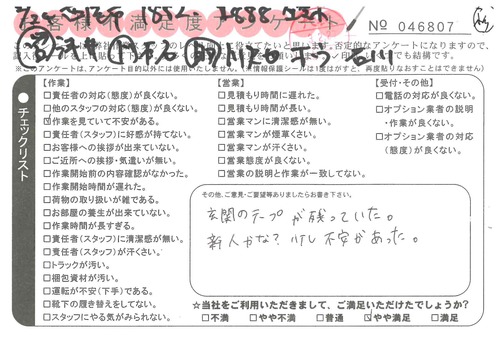 お客様満足度アンケート
No 046807
※このアンケートは、アンケート目的以外には使用いたしません。(情報保護シールは1度がすと、再度貼りなおすことはできません)
チェックリスト
【作業】
□責任者の対応(態度)が良くない。
□他のスタッフの対応(態度)が良くない。
☑作業を見ていて不安がある。
□責任者(スタッフ)に好感が持てない。
□お客様への挨拶が出来ていない。
□ご近所への挨拶・気遣いが無い。
□作業開始前の内容確認がなかった。
□作業開始時間が遅れた。
□荷物の取り扱いが雑である。
□お部屋の養生が出来ていない。
□作業時間が長すぎる。
□責任者(スタッフ)に清潔感が無い。
□責任者(スタッフ)が汗くさい。
□トラックが汚い。
□梱包資材が汚い。
□運転が不安(下手)である。
□靴下の履き替えをしてない。
□スタッフにやる気がみられない。
【営業】
□見積もり時間に遅れた。
□見積もり時間が長い。
□営業マンに清潔感が無い。
□営業マンが煙草くさい。
□営業マンが汗くさい。
□営業態度が良くない。
□営業の説明と作業が一致してない。
【受付・その他】
□電話の対応が良くない。
□オプション業者の説明
・作業が良くない。
□オプション業者の対応
(態度)が良くない。
その他、ご意見・ご要望等ありましたらお書き下さい。
玄関のテープが残っていた。
新人かな?少し不安があった。
☆当社をご利用いただきまして、ご満足いただけたでしょうか?
□不満 □やや不満 □普通 ☑やや満足 □満足